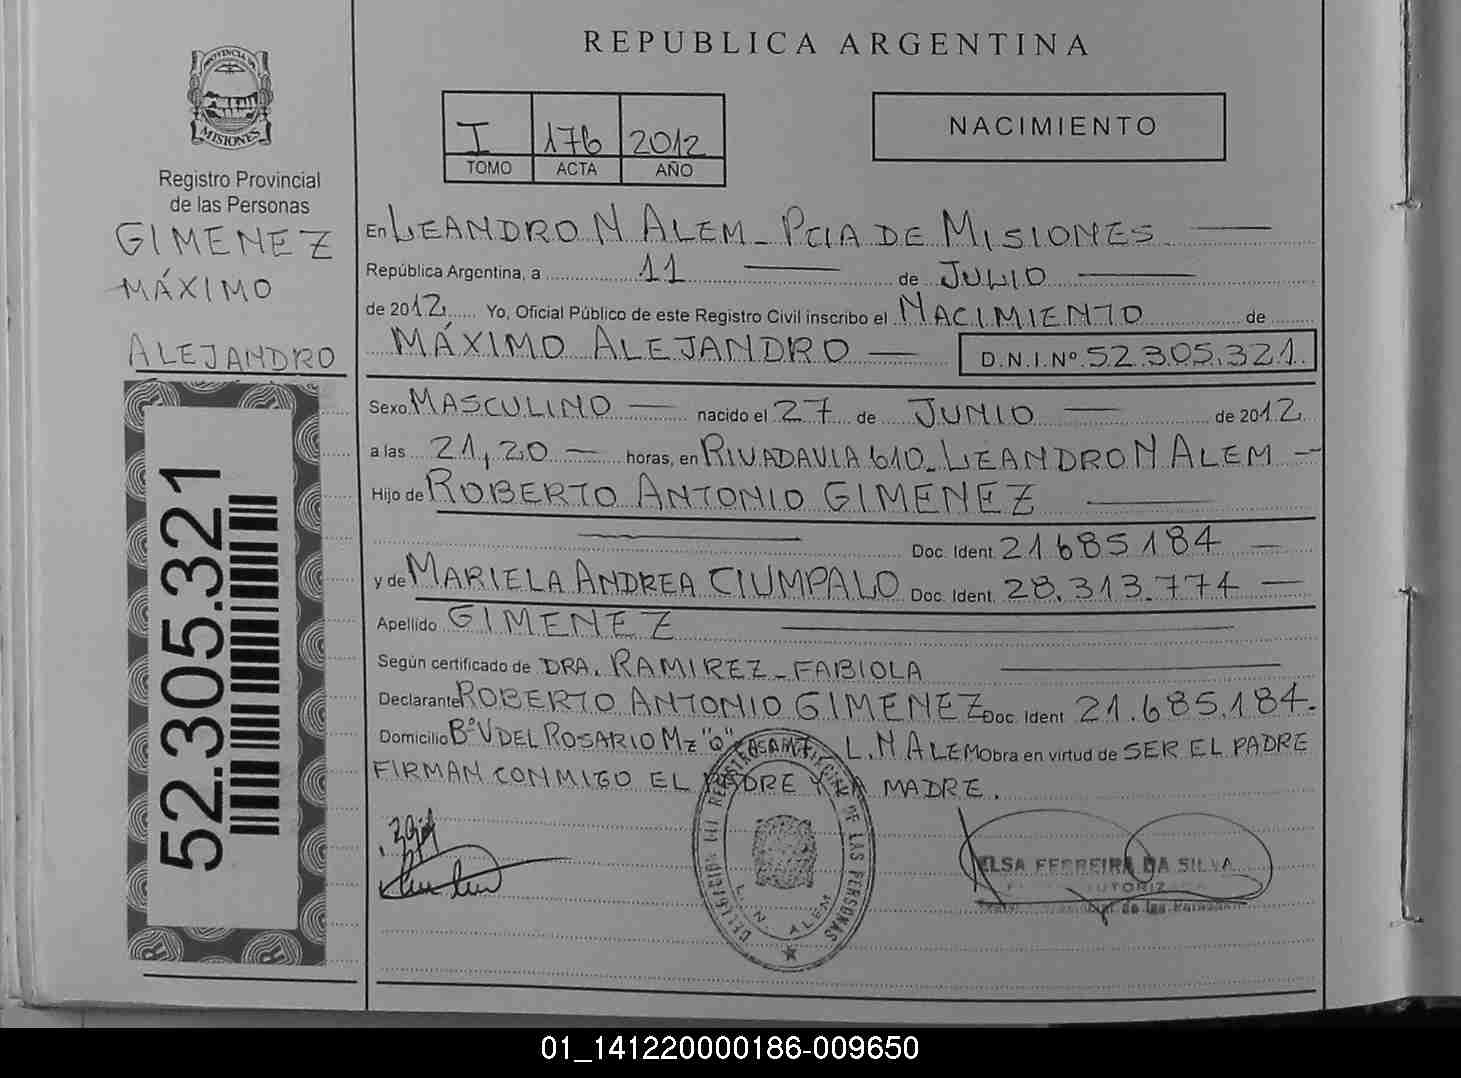 REPUBLICA ARGENTINA
PROVINCIA DE
MISIONES
Registro Provincial
de las Personas
GIMENEZ
MÁXIMO
ALEJANDRO
52.305.321
I 176 2012
TOMO ACTA AÑO
NACIMIENTO
En LEANDRO N ALEM - PCIA DE MISIONES
República Argentina, a 11 de JULIO
de 2012 Yo, Oficial Público de este Registro Civil inscribo el NACIMIENTO de
MÁXIMO ALEJANDRO — D.N.I.Nº 52.305.321.
Sexo MASCULINO — nacido el 27 de JUNIO — de 2012
a las 21,20 — horas, en RIVADAVIA 610 - LEANDRO N ALEM —
Hijo de ROBERTO ANTONIO GIMENEZ
Doc. Ident. 21685184 —
y de MARIELA ANDREA CIUMPALO Doc. Ident. 28.313.774 —
Apellido GIMENEZ
Según certificado de DRA. RAMIREZ - FABIOLA
Declarante ROBERTO ANTONIO GIMENEZ Doc. Ident 21.685.184.
Domicilio Bº V DEL ROSARIO Mz "Q" CASA L.N ALEM Obra en virtud de SER EL PADRE
FIRMAN CONMIGO EL PADRE Y LA MADRE.
DE LAS PERSONAS
L. N. ALEM
ELSA FERREIRA DA SILVA
de las Personas
01_141220000186-009650